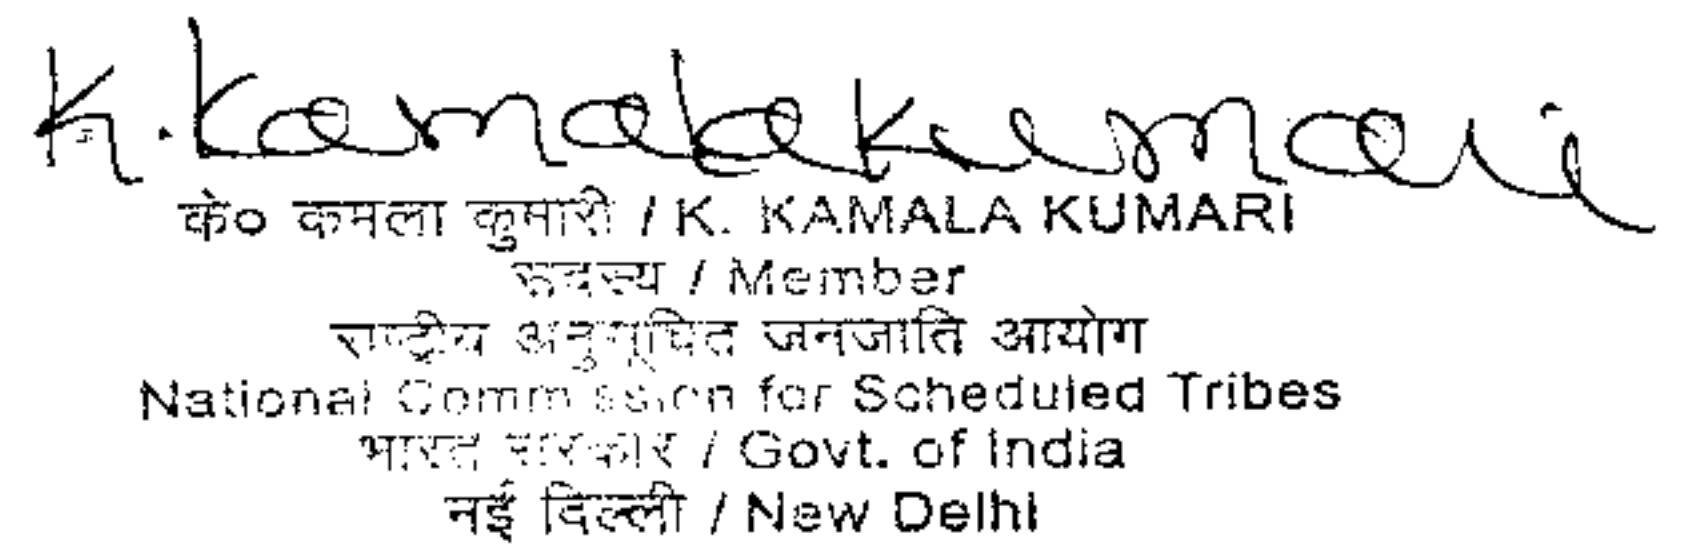 K. Kamala Kumari
के० कमला कुमारी / K. KAMALA KUMARI
सदस्य / Member
राष्ट्रीय अनुसूचित जनजाति आयोग
National Commission for Scheduled Tribes
भारत सरकार / Govt. of India
नई दिल्ली / New Delhi